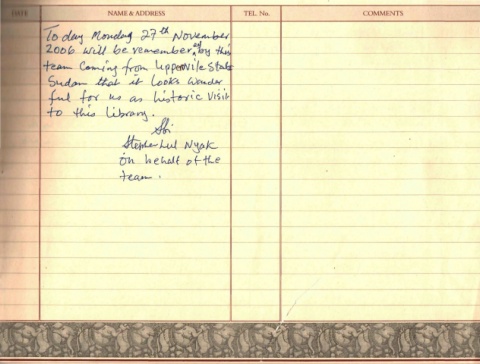 DATE NAME & ADDRESS TEL. No. COMMENTS
Today Monday 27th November
2006 will be remembered by this
team coming from uppernile State
Sudan that it looks wonder
ful for us as historic visit
to this library.
Stephen Lul Nyak
on behalf of the
team.